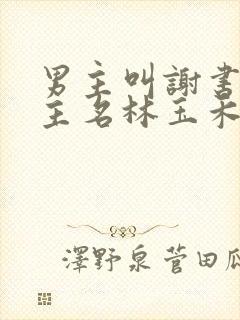 男主叫謝書
主名林玉禾
澤野泉菅田瓜